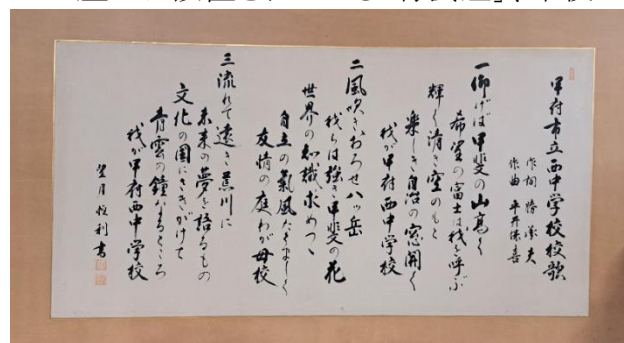 甲府市立西中学校校歌
作曲 平井保喜
一 仰げば甲斐の山高く
希望の富士は我を呼ぶ
輝く清き空のもと
楽しき自治の窓開く
我が甲府西中学校
二 風吹きおろせ八ッ岳
我らは強き甲斐の花
世界の知識求めつゝ
自立の氣風たくましく
友情の庭わが母校
三 流れて遠き荒川に
未来の夢を語るもの
文化の国にさきがけて
青雲の鐘なるところ
我が甲府西中学校
望月 利書